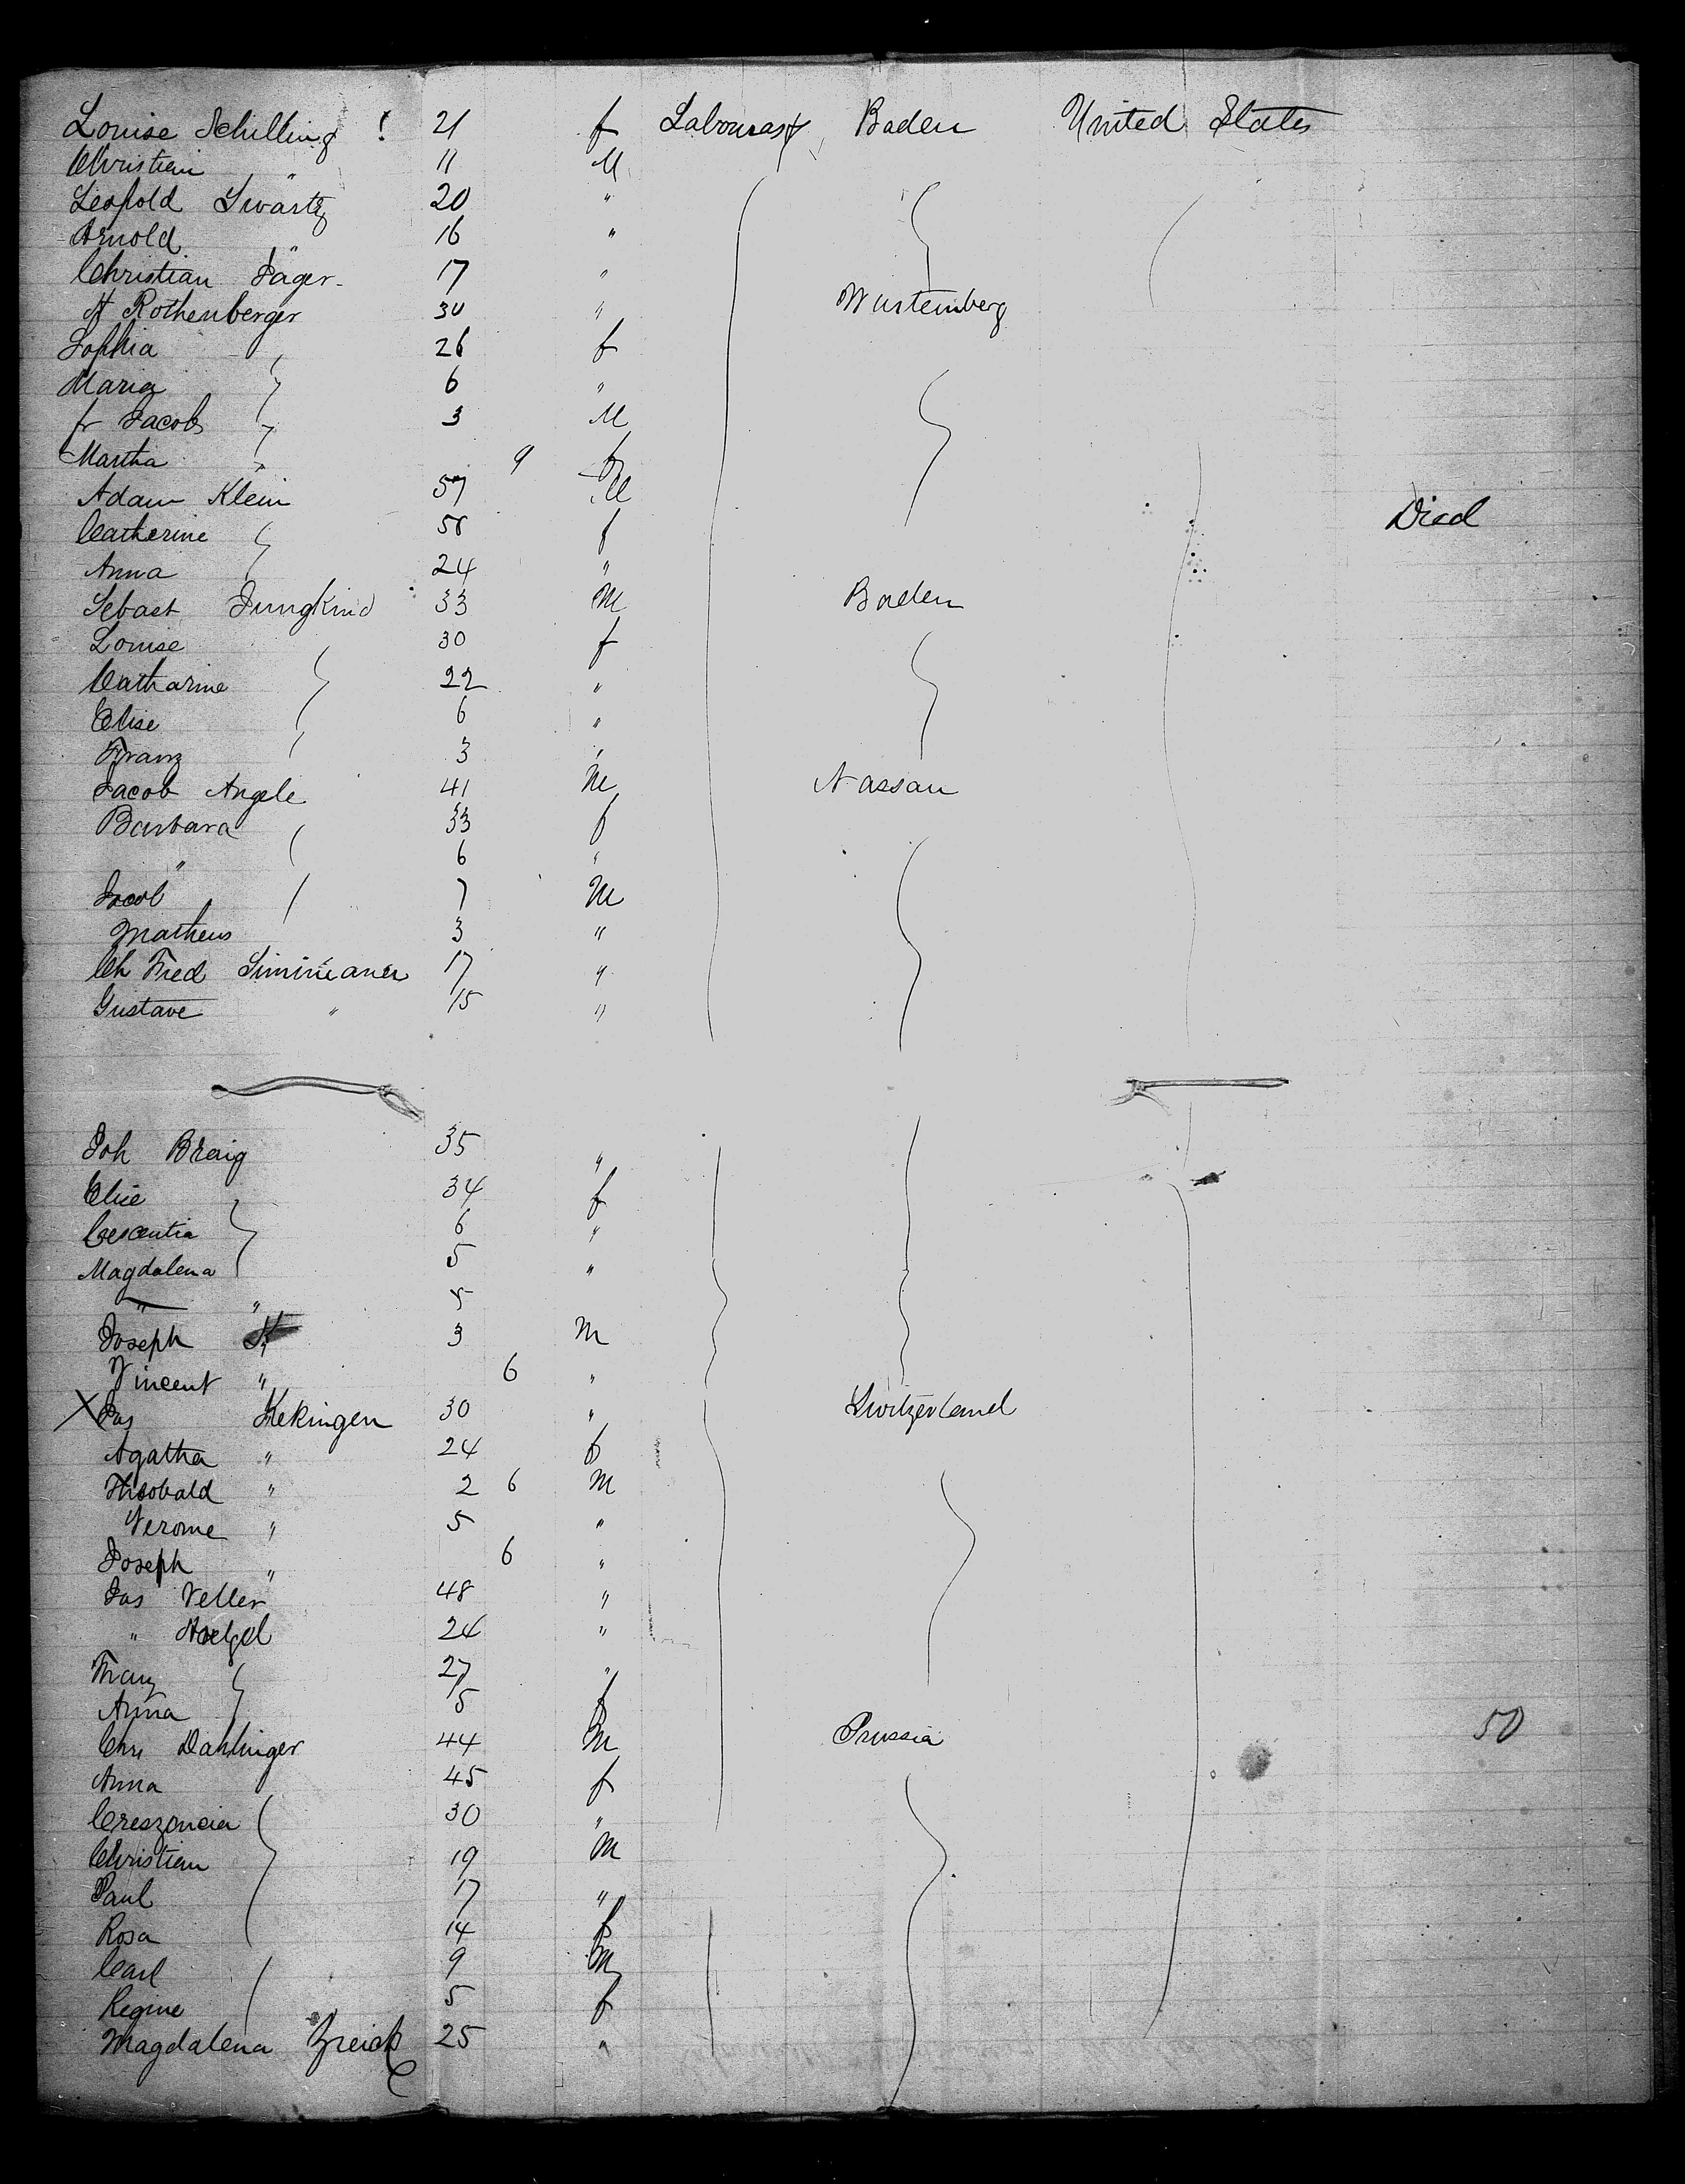 Louise Schilling 21 f Labourers Baden United States
Christian " 11 M
Leopold Swartz 20 "
Arnold " 16 "
Christian Jäger 17 "
A Rothenberger 30 " Wurtemberg
Sophia 26 f
Maria 6 "
fr Jacob 3 M
Martha " 9 f
Adam Klein 57 M Died
Catherine 58 f
Anna 24 "
Sebast Jungkind 33 M Baden
Louise 30 f
Catharine 22 "
Elise 6 "
Franz 3 "
Jacob Angele 41 M Nassau
Barbara 33 f
" 6 "
Jacob 7 M
Matheus 3 "
Ch Fred 17 "
Gustave " 15 "
Joh Braig 35 "
Elise 34 f
Cescentia 6 "
Magdalena 5 "
" " 5
Joseph 3 M
Vincent " 6 "
X Jos Kekingen 30 " Switzerland
Agatha " 24 f
Theobald " 2 6 M
Verome " 5 "
Joseph " 6 "
Jos Veller 48 "
" 24 "
Franz 27 "
Anna 5 f
Chr Dahlinger 44 M Prussia 50
Anna 45 f
Creszoncia 30 "
Christian 19 M
Paul 17 "
Rosa 14 f
Carl 9 M
Regine 5 f
Magdalena 25 "